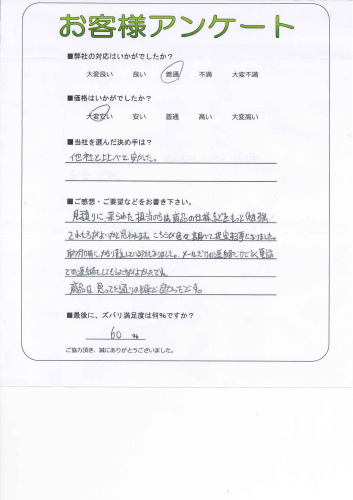 お客様アンケート
■弊社の対応はいかがでしたか？
大変良い 良い 普通 不満 大変不満
■価格はいかがでしたか？
大変安い 安い 普通 高い 大変高い
■当社を選んだ決め手は？
他社と比べて安かった。
■ご感想・ご要望などをお書き下さい。
見積りに来られた担当の方は商品の仕様などをもっと勉強
された方がよいかと思われます。こちらが色々調べて提案する事になりました。
メールだけの連絡でなく電話
での連絡をしてもらえればよかったです。
商品は思ってた通りの物で良かったです。
■最後に、ズバリ満足度は何%ですか？
60 %
ご協力頂き、誠にありがとうございました。